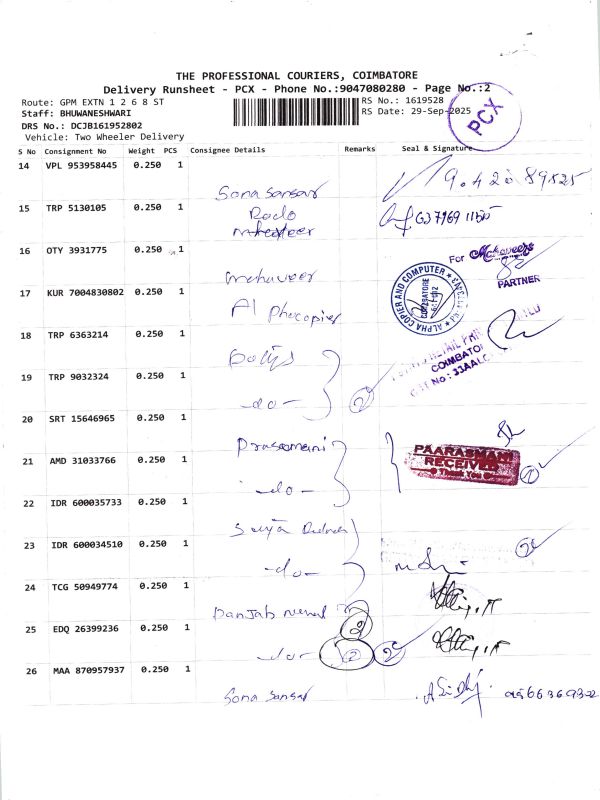 THE PROFESSIONAL COURIERS, COIMBATORE
Delivery Runsheet - PCX - Phone No.:9047080280 - Page No.:2
Route: GPM EXTN 1 2 6 8 ST
RS No.: 1619528
Staff: BHUWANESHWARI
RS Date: 29-Sep-2025
PCX
DRS No.: DCJB161952802
Vehicle: Two Wheeler Delivery
S No Consignment No Weight PCS Consignee Details Remarks Seal & Signature
14 VPL 953958445 0.250 1
Sona Sansar
15 TRP 5130105 0.250 1
16 OTY 3931775 0.250 1
For
PARTNER
Mahaveer
17 KUR 7004830802 0.250 1
ALPHA COPIER AND COMPUTER
18 TRP 6363214 0.250 1
COIMBATO
19 TRP 9032324 0.250 1
-do- 2
20 SRT 15646965 0.250 1
PAARASMANI
RECEIVER
Thank You
21 AMD 31033766 0.250 1
-do-
22 IDR 600035733 0.250 1
23 IDR 600034510 0.250 1
-do-
24 TCG 50949774 0.250 1
25 EDQ 26399236 0.250 1
-do- 2 2
26 MAA 870957937 0.250 1
Sona Sansar